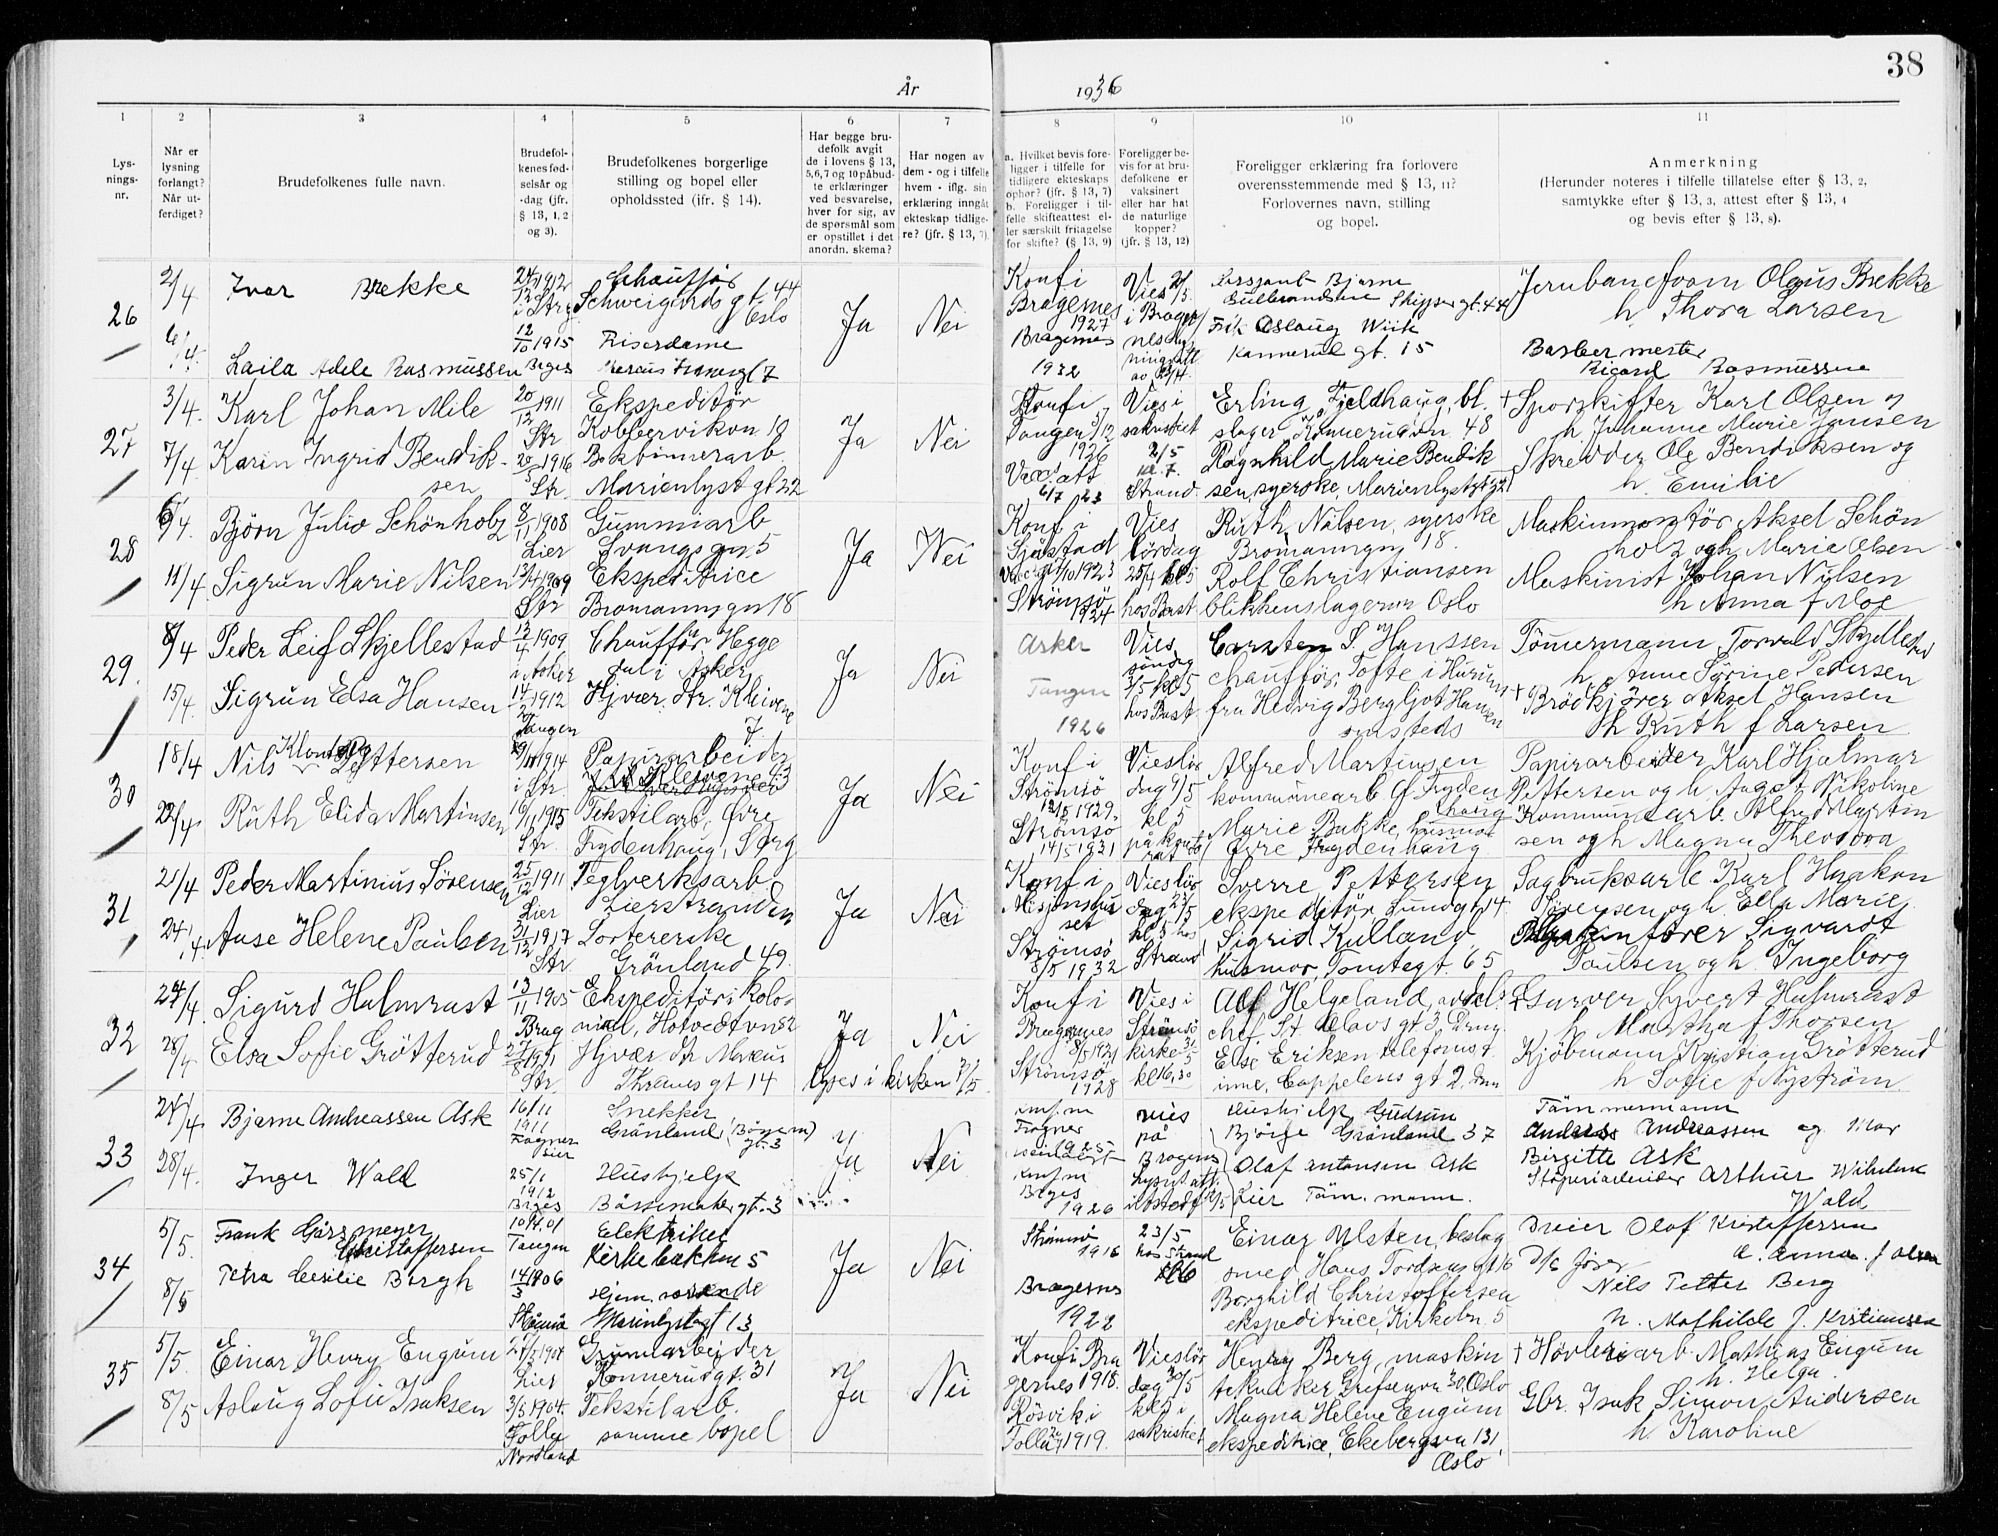 38
År 1936
1
2
3
4
5
6
7
8
9
10
11
Lysningsnr.
Når er lysning forlangt? Når utferdiget?
Brudefolkenes fulle navn.
Brudefolkenes fødselsår og -dag (jfr. § 13, 1, 2 og 3).
Brudefolkenes borgerlige stilling og bopel eller opholdssted (jfr. § 14).
Har begge brudefolk avgit de i lovens § 13, 5, 6, 7 og 10 påbudte erklæringer ved besvarelse, hver for sig, av de spørsmål som er opstillet i det anordn. skema?
Har nogen av dem - og i tilfelle hvem - iflg. sin erklæring inngått ekteskap tidligere? (jfr. § 13, 7).
a. Hvilket bevis foreligger i tilfelle for tidligere ekteskaps ophør? (jfr. § 13, 7)
b. Foreligger i tilfelle skifteattest eller særskilt fritagelse for skifte? (§ 13, 9)
Foreligger bevis for at brudefolkene er vaksinert eller har hat de naturlige kopper? (jfr. § 13, 12)
Foreligger erklæring fra forlovere overensstemmende med § 13, 11? Forlovernes navn, stilling og bopel.
Anmerkning
(Herunder noteres i tilfelle tillatelse efter § 13, 2, samtykke efter § 13, 3, attest efter § 13, 4 og bevis efter § 13, 8).
26
2/4
Ivar Brekke
24/12 1912
Chauffør
Schweigårds gt. 44
Oslo
6/4
Laila Adele Rasmussen
12/10 1915
Brages
Riserdame
Ja
Nei
Konf i
Bragernes
1927
Bragernes
1932
Vies
Sersjant Bjarne
Gulbrandsen Skippergt. 44
Frk Aslaug Wiik
Konnerud gt. 15
Jernbaneform Olaus Brekke
h. Thora Larsen
Barbermester
Ricard Rasmussen
27
3/4
Karl Johan Mile
20/12 1911
Str
Ekspeditør
Kobbervikdn 19
7/4
Karin Ingrid Bendiksen
20/5 1916
Str.
Bokbinnerarb.
Marienlyst gt 22
Ja
Nei
Konf i
Tangen
1926
Vacc. att
6/7 23
Vies i
sakristiet
2/5
kl. 7.
Strand.
Erling Fjeldhaug, bl.
slager Konnerudgn 48
Ragnhild Marie Bendik
sen, syerske, Marienlystgt 22
+ Sporskifter Karl Olsen og
h. Johanne Marie Jansen
Skredder Ole Bendiksen og
h. Emilie
28
6/4
Björn Julio Schönholz
8/11 1908
Lier
Gummiarb
Svangs gn 5
11/4
Sigrun Marie Nilsen
13/4 1909
Str
Ekspeditrice
Bromannsgn 18
Ja
Nei
Konf i
Sjåstad
1923
Strömsö
1924
Vies
lördag
25/4 kl 5
hos Bast
Ruth Nilsen, syerske
Bromanngn 18.
Rolf Christiansen
blikkenslager Oslo
Maskinmontör Aksel Schön
holz og h. Marie Olsen
Maskinist Johan Nilsen
h Anna f Moe
29.
8/4
Peder Leif Skjellestad
12/4 1909
i Asker
Chauffør, Hegge
dal i Asker
15/4
Sigrun Elsa Hansen
14/2 1912
Tangen
Hjvær. Str. Kleivene
7
Ja
Nei
Asker
Tangen
1926
Vies
søndag
3/5 kl 5
hos Bast
Carsten S. Hanssen
chauffør, Tofte i Hurum
fru Hedvig Bergljot Hansen
synsteds
Tömmermann Torvald Skjellestad
h. Anne Sørine Pedersen
+ Brödkjörer Aksel Hansen
h Ruth f Larsen
30
18/4
Nils Pettersen
1914
i Str.
Papirarbeider
Kleivene 43
22/4
Ruth Elida Martinsen
16/11 1915
Str
Tekstilarb, Øvre
Frydenhaug, Strg
Ja
Nei
Konf i
Strömsö
1929.
Strömsö
14/5 1931
Vieslör
dag 9/5
kl 5
på kon
Alfred Martinsen
kommunearb Ø. Fryden
haug
Marie Butzke, husmor
Øvre Frydenhaug
Papirarbeider Karl Hjalmar
Pettersen og h. August Nikoline
Kommunearb. Alfred Martin
sen og h Magna Theodora
31
21/4
Peder Martinius Sörensen
25/12 1911
Lier
Teglverksarb.
Lierstranden
24/4
Aase Helene Paulsen
31/12 1917
Str
Sortererske
Grönland 49.
Ja
Nei
Konf i
Misjonshu
set
Strömsö
8/5 1932
Vieslör
dag 23/5
kl 5 hos
Strand
Sverre Pettersen
ekspeditör Lundgt 14
Sigrid Kulland
husmor, Tomtegt. 65
Sagbruksarb Karl Haakon
Sörensen og h. Ella Marie
Sigvardt
Paulsen og h. Ingeborg
32
24/4
Sigurd Halmrast
13/11 1905
Brag
Ekspeditör i kolo-
nial, Hotvedtvn 52
28/4
Elsa Sofie Grötterud
Str.
Hjvær dtr Marcus
Thranes gt 14
Ja
Nei
lyses i kirken 3/5.
Konf i
Bragernes
8/5 1921
Strömsö
1928
Vies i
Strömsö
kirke 31/5
kl 16,30
Alf Helgeland avdel:
chef, St Olavs gt 3, Dram
Else Eriksen telefonist
inne, Cappelens gt 2, Dram
+ Garver Syvert Halmrast
h Martha f Thorsen
Kjöbmann Kristian Grötterud
h Sofie f Nyström
33
24/4
Bjarne Andreassen Ask
16/11
1911
Frogner
Lier
Snekker
Grönland (Börsem)
gt. 3
28/4.
Inger Wald
25/1
1912
Brges
Hushjelp
Bössemaker gt. 3
Ja
Nei
Konf.
Frogner
1925
Brges
1926
vies
på
Bragernes
Hushjelp Gudrun
Bjørge Grönland 37
Olaf Antonsen Ask
Lier Töm. mann.
Tömmermann
Anders Andreassen og Mar
Birgitte Ask
Støperiarbeider Arthur Wilhelm
Wald
34
5/5.
Frank Görsmeyer
Christoffersen
10/4.01
Tangen
Elektriker
Kirkebakken 5
8/5
Petra Cecilie Borgh
14/3 1906
Strömsö
Hjem. værende
Marienlystgt 13
Ja
Nei
Strömsö
1916
Bragernes
1922
23/5
hos Strand
kl 6
Einar Ulsten, beslag
smed, Hans Tordsens gt 16
Borghild Christoffersen
ekspeditrice, Kirkebn. 5
Breier Olaf Kristoffersen
h. Anna f. Olsen
Nils Petter Berg
h. Mathilde f. Kristiansen
35
5/5.
Einar Henry Engum
1904
Lier
Grunnarbeider
Konnerudgt. 31
8/5
Aslaug Sofie Isaksen
3/5 1904.
Folla
Nordland
Tekstilarb.
samme bopel
Ja
Nei
Konf i Bra
gernes 1918.
Rösvik i
Folla 1919.
Vieslör
dag 30/5
kl 5 i
sakristiet
Henry Berg, maskin
tekniker Grefsenvn 30, Oslo
Magna Helene Engum
ekspeditrice, Ekebergvn 131,
Oslo
+ Høvleriarb. Mathias Engum
h. Helga.
Gbr. Isak Simon Andersen
h. Karoline